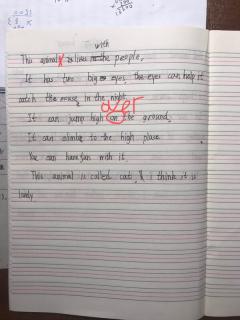 with
This animal is lives in the people.
It has two big eyes, the eyes can help it
catch the mouse in the night.
over
It can jump high on the ground.
It can climb to the high place.
You can have fun with it.
This animal is called cat. & i think it is
lovely